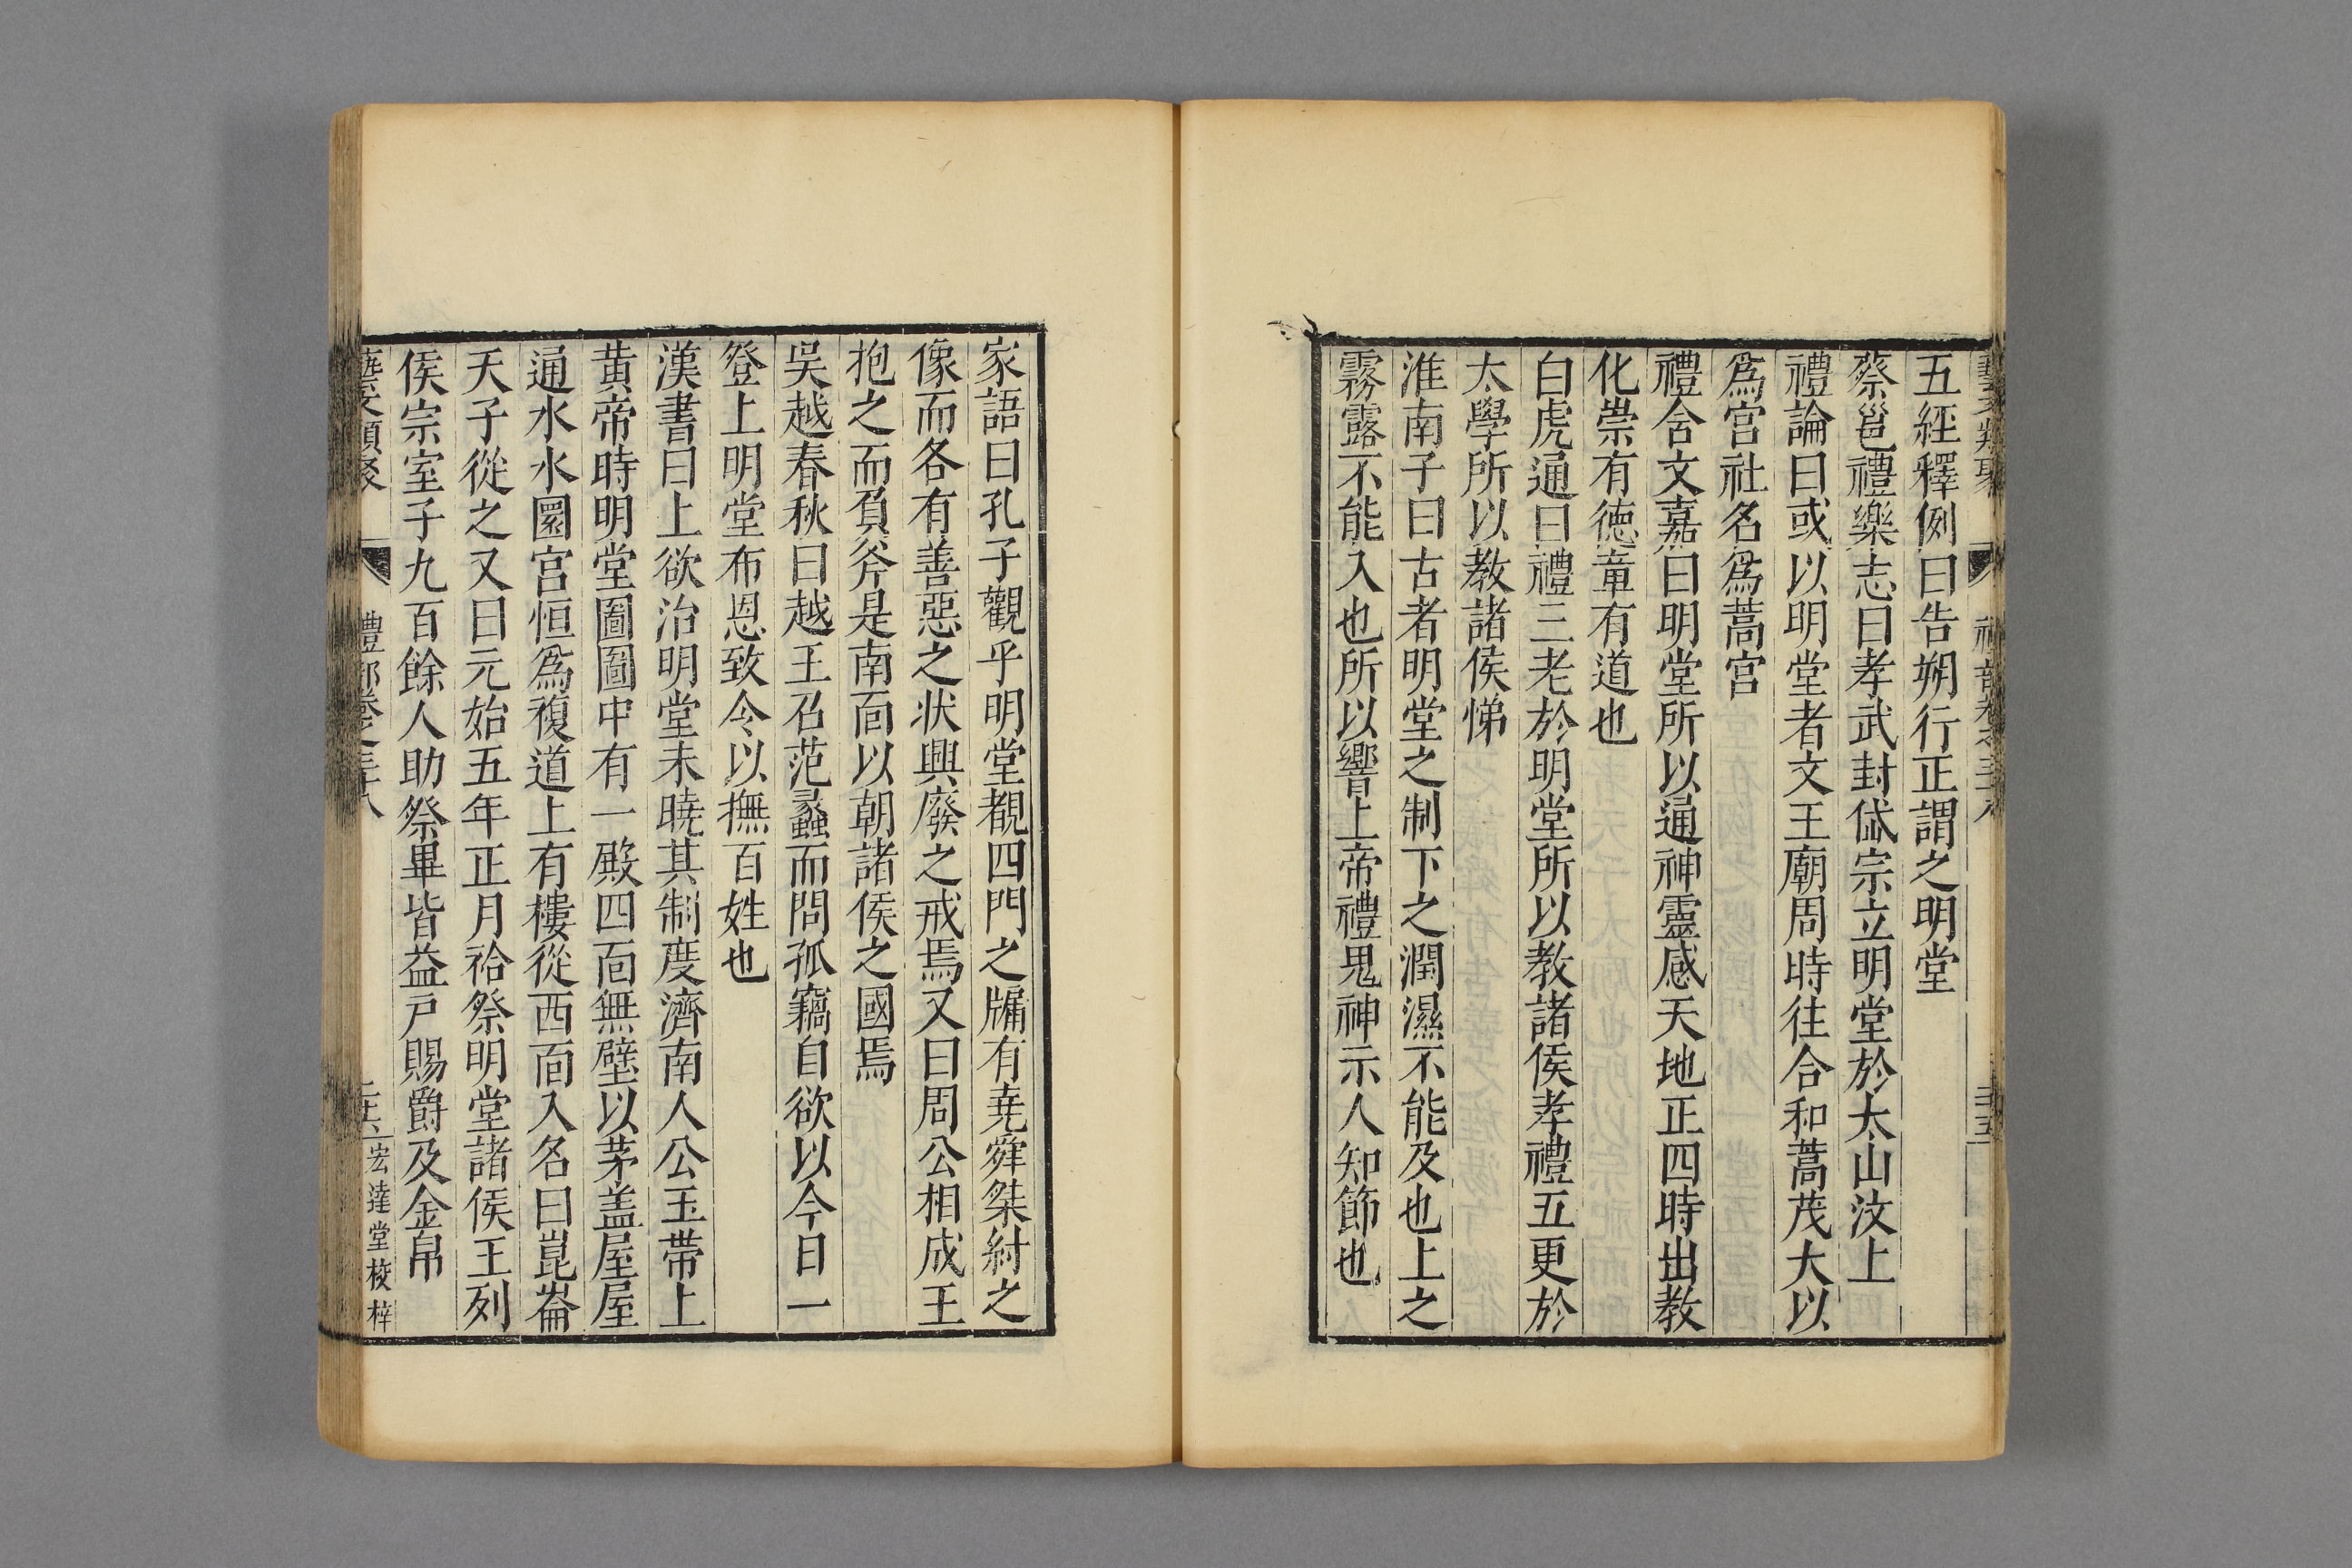 五經釋例曰告朔行正謂之明堂
蔡邕禮樂志曰孝武封岱宗立明堂於太山汶上
禮論曰或以明堂者文王廟周時往合和蒿茂大以
爲宫社名爲蒿宫
禮舍文嘉曰明堂所以通神靈感天地正四時出教
化崇有徳章有道也
白虎通曰禮三老於明堂所以教諸侯孝禮五更於
太學所以教諸侯悌
淮南子曰古者明堂之制下之潤濕不能及也上之
霧露不能入也所以響上帝禮鬼神示人知節也
家語曰孔子觀乎明堂覩四門之牖有堯舜桀紂之
像而各有善惡之状興廢之戒焉又曰周公相成王
抱之而負斧是南面以朝諸侯之國焉
吳越春秋曰越王召范蠡而問孤竊自欲以今日一
登上明堂布恩致令以撫百姓也
漢書曰上欲治明堂未曉其制度濟南人公玉帶上
黄帝時明堂圖圖中有一殿四面無壁以茅盖屋屋
通水水圜宫恒爲複道上有樓從西面入名曰崑崙
天子從之又曰元始五年正月祫祭明堂諸侯王列
侯宗室子九百餘人助祭畢皆益戸賜爵及金帛
藝文類聚 禮部卷之三十八 宏達堂校梓